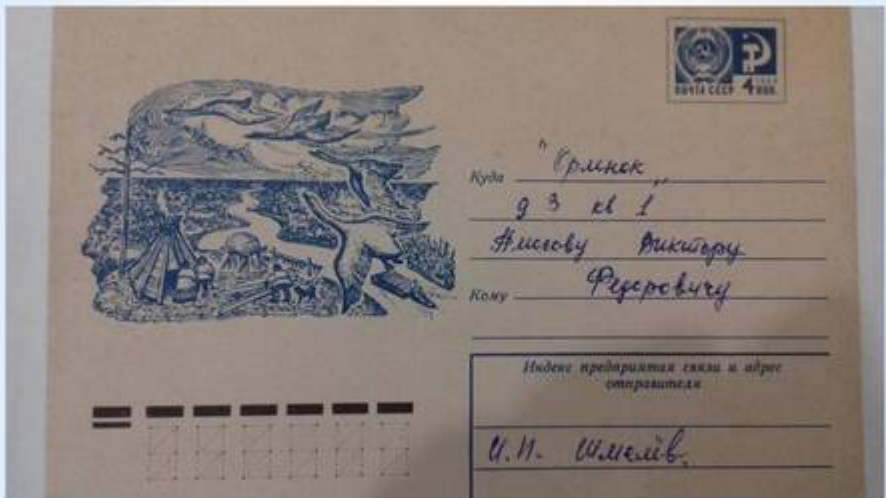 ПОЧТА СССР 4 КОП.
Куда "Ермнок"
д 3 кв 1
Амосову Виктору
Кому Федоровичу
Индекс предприятия связи и адрес
отправителя
И.И. Шмелёв.